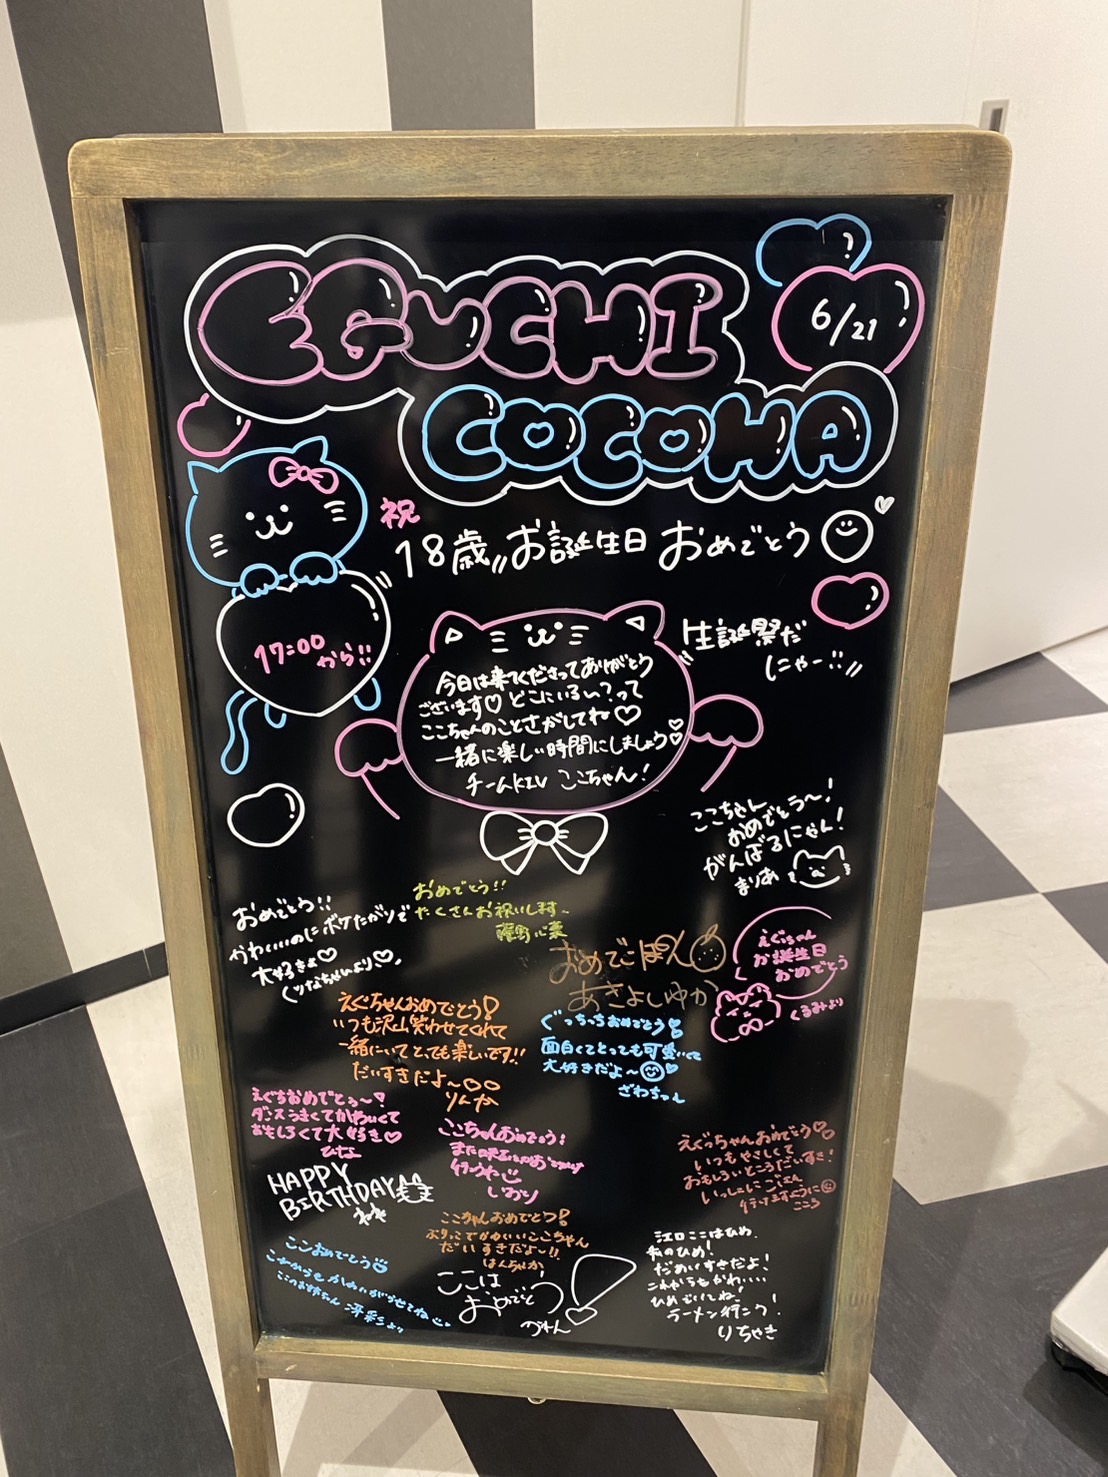 EGUCHI
COCOWA
6/21
祝
18歳〃お誕生日おめでとう
17:00
から!!
生誕祭だ
にゃー!!〃
今日は来てくださってありがとう
ございます♡どこにいるい?って
ここちゃんのことさがしてね♡
一緒に楽しい時間にしましょう♡
チームKIV ここちゃん!
ここちゃん
おめでとう〜!
がんばるにゃん!
まりあ
おめでとう!!
かわいいのにボケたがりで
大好きよ♡
くりなちゃんより♡
おめでとう!!
たくさんお祝いします
藤野心葉
おめでごぽん
あきよしゆか
えぐちゃん
お誕生日
おめでとう
くるみより
えぐちゃんおめでとう!
いつも沢山笑わせてくれて
一緒にいてとても楽しいです!!
だいすきだよ〜
りんか
ぐっちっちおめでとう
面白くてとっても可愛いくて
大好きだよ〜
ざわちゃん
えぐちおめでとぅ〜!
ダンスうまくてかわいくて
おもしろくて大好き♡
ひな
ここちゃんおめでとう!
また
行こうね
しおり
えぐっちゃんおめでとう♡
いつもやさしくて
おもしろいところだいすき!
いっしょにごはん
行けますように
こころ
HAPPY
BIRTHDAY
ここちゃんおめでとう!
ぶりっこでかわいいここちゃん
だいすきだよ〜!!
はんちゃんか
ここおめでとう
これからもかめいがらせてね
ここのお姉ちゃん 渟彩より
ここは
おめでとう!
江口ここはひめ
私のひめ!
だめいすきだよ!
これからもかわいい
ひめでいてね!
ラーメン行こう!
りちゃき